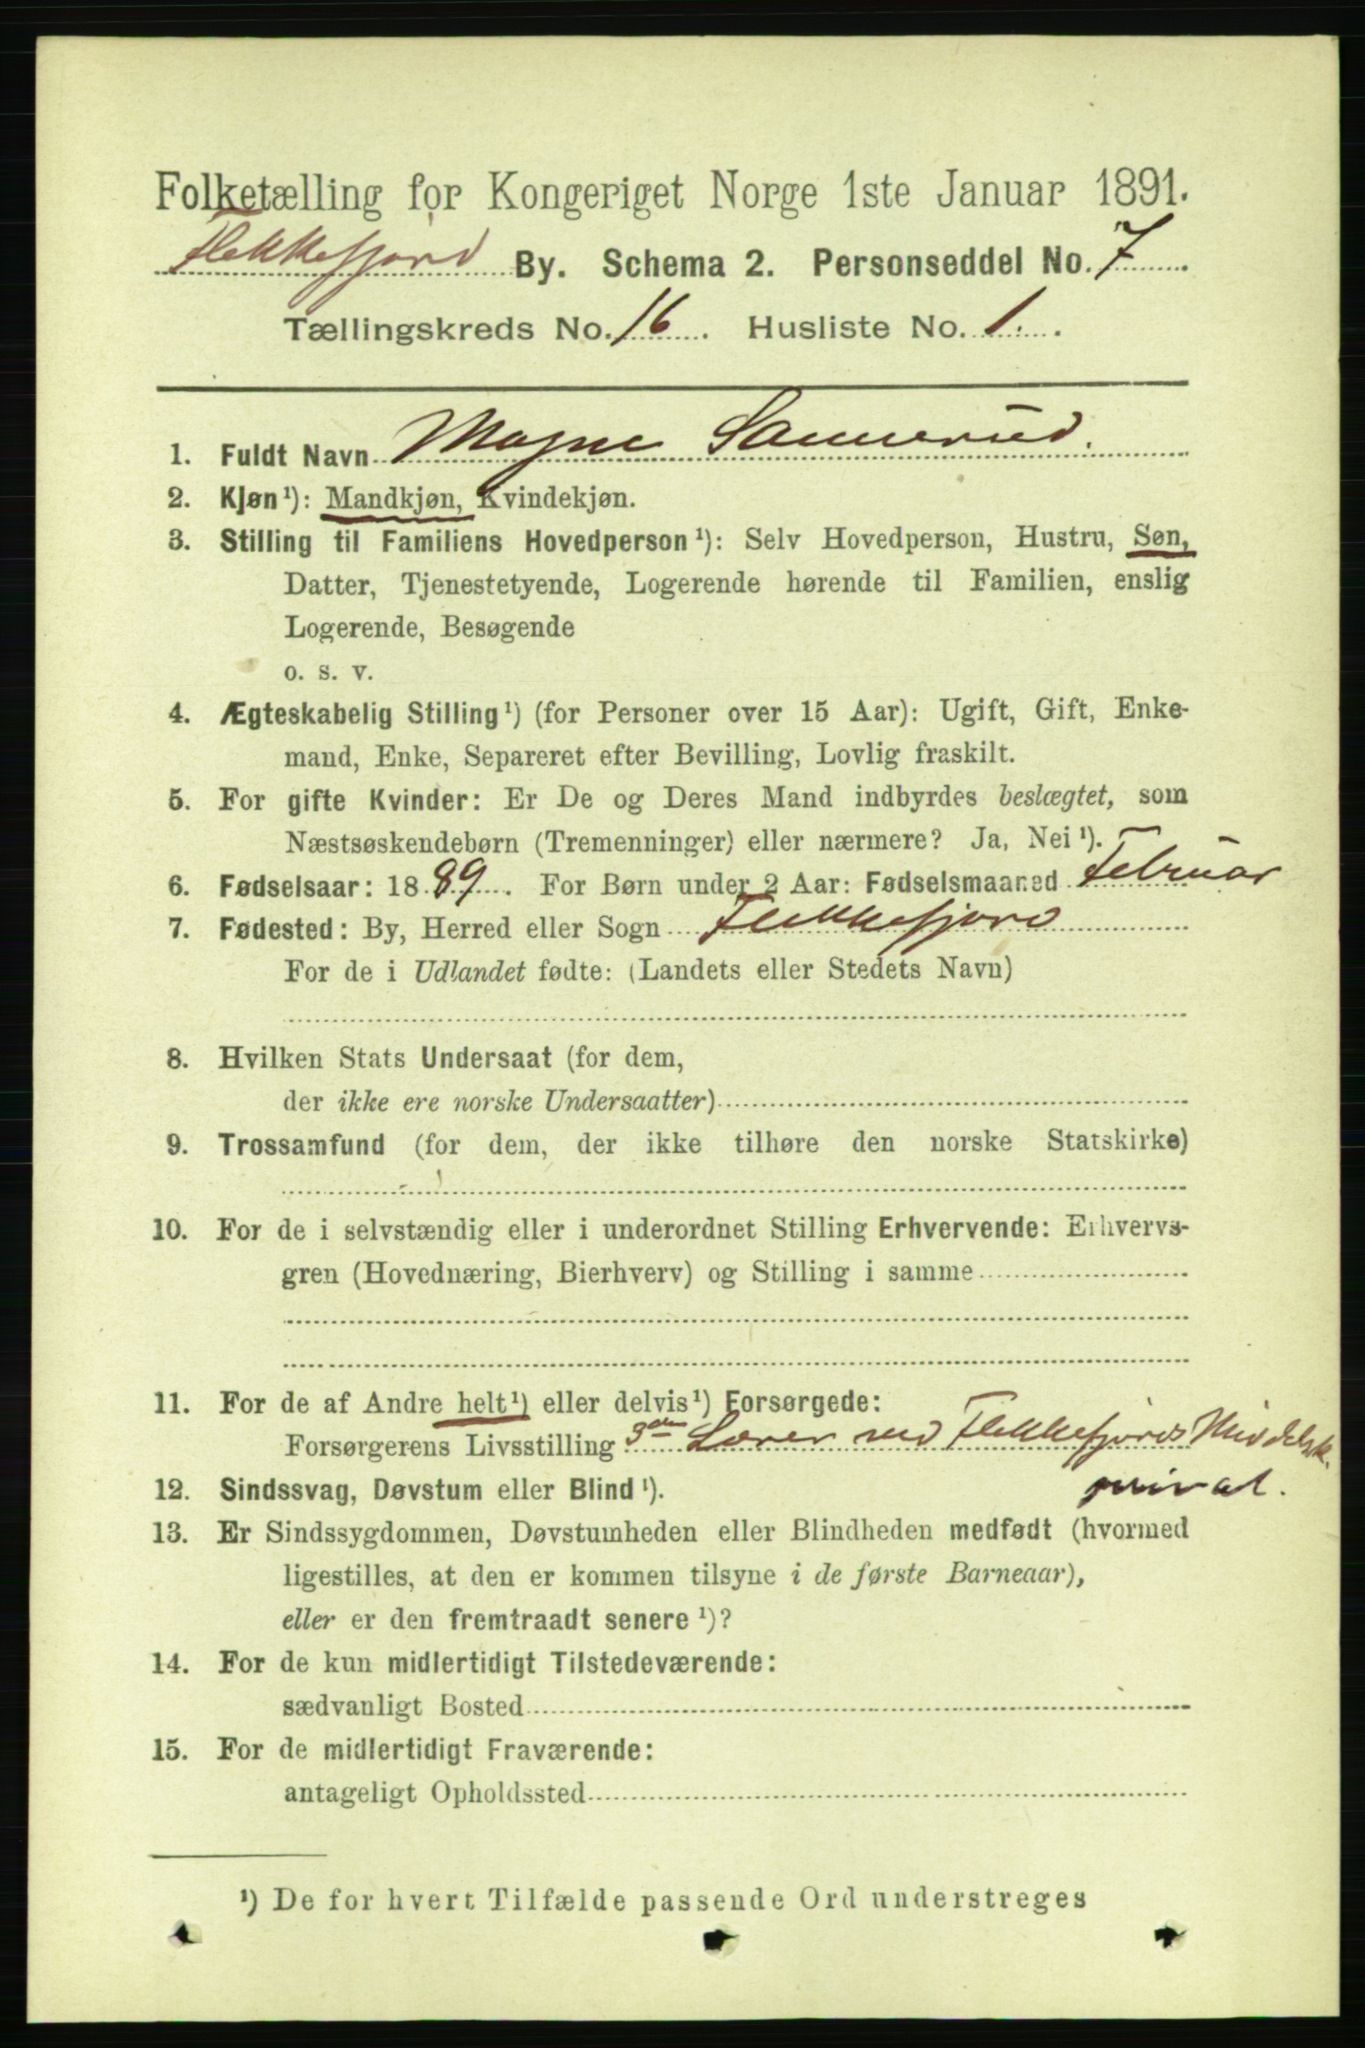 Folketælling for Kongeriget Norge 1ste Januar 1891.
Flekkefjord By. Schema 2. Personseddel No. 7
Tællingskreds No. 16. Husliste No. 1.
1. Fuldt Navn Magne Sannerud.
2. Kjøn¹): Mandkjøn, Kvindekjøn.
3. Stilling til Familiens Hovedperson¹): Selv Hovedperson, Hustru, Søn,
Datter, Tjenestetyende, Logerende hørende til Familien, enslig
Logerende, Besøgende
o. s. v.
4. Ægteskabelig Stilling¹) (for Personer over 15 Aar): Ugift, Gift, Enke-
mand, Enke, Separeret efter Bevilling, Lovlig fraskilt.
5. For gifte Kvinder: Er De og Deres Mand indbyrdes beslægtet, som
Næstsøskendebørn (Tremenninger) eller nærmere? Ja, Nei¹).
6. Fødselsaar: 1889. For Børn under 2 Aar: Fødselsmaaned Februar
7. Fødested: By, Herred eller Sogn Flekkefjord
For de i Udlandet fødte: (Landets eller Stedets Navn)
8. Hvilken Stats Undersaat (for dem,
der ikke ere norske Undersaatter)
9. Trossamfund (for dem, der ikke tilhøre den norske Statskirke)
10. For de i selvstændig eller i underordnet Stilling Erhvervende: Erhvervs-
gren (Hovednæring, Bierhverv) og Stilling i samme
11. For de af Andre helt¹) eller delvis¹) Forsørgede:
Forsørgerens Livsstilling 3die Lærer ved Flekkefjords Middelsk.
privat.
12. Sindssvag, Døvstum eller Blind¹).
13. Er Sindssygdommen, Døvstumheden eller Blindheden medfødt (hvormed
ligestilles, at den er kommen tilsyne i de første Barneaar),
eller er den fremtraadt senere¹)?
14. For de kun midlertidigt Tilstedeværende:
sædvanligt Bosted
15. For de midlertidigt Fraværende:
antageligt Opholdssted
¹) De for hvert Tilfælde passende Ord understreges